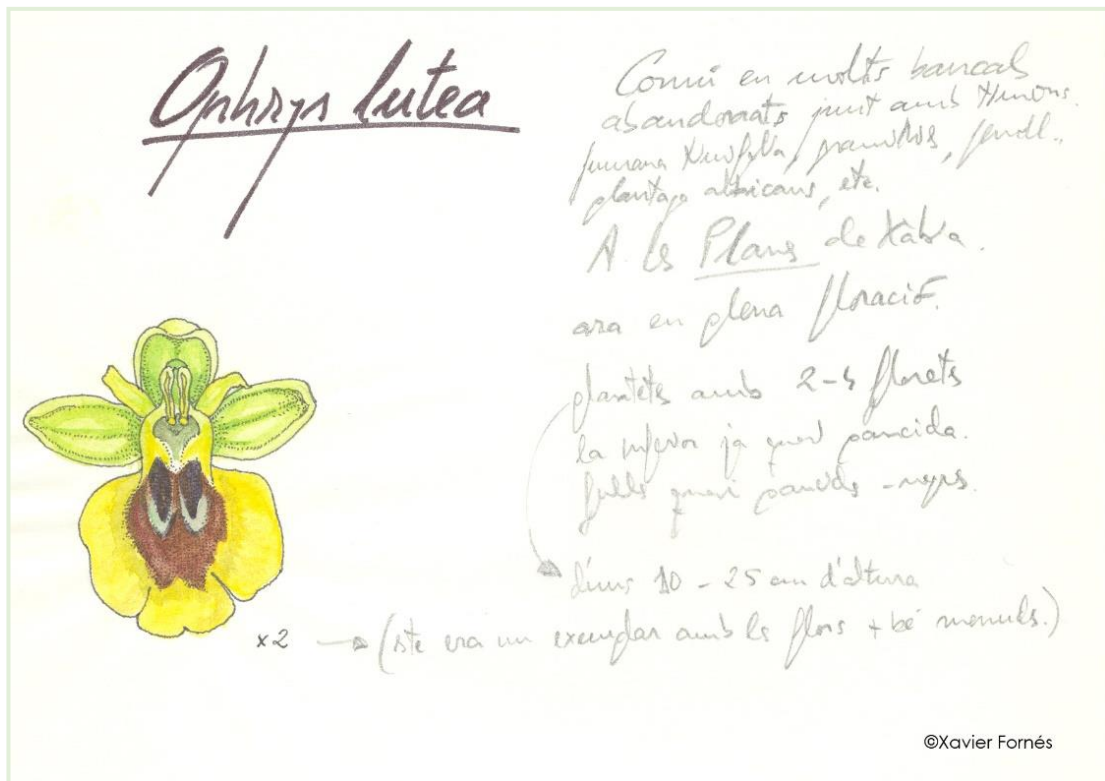 Ophrys lutea
Comú en molts bancals
abandonats junt amb
fumana
plantago albicans, etc.
A les Plans de Xàbia.
ara en plena floració.
plantetes amb 2-4 florets
la inferior ja quasi pancida.
fulls quasi pancides - negres.
d'uns 10 - 25 cm d'altura
x2 → (este era un exemplar amb les flors + bé menudes.)
©Xavier Fornés